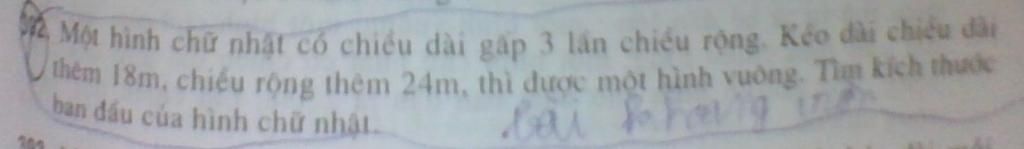 Một hình chữ nhật có chiều dài gấp 3 lần chiều rộng. Kéo dài chiều dài
thêm 18m, chiều rộng thêm 24m, thì được một hình vuông. Tìm kích thước
ban đầu của hình chữ nhật.
bài